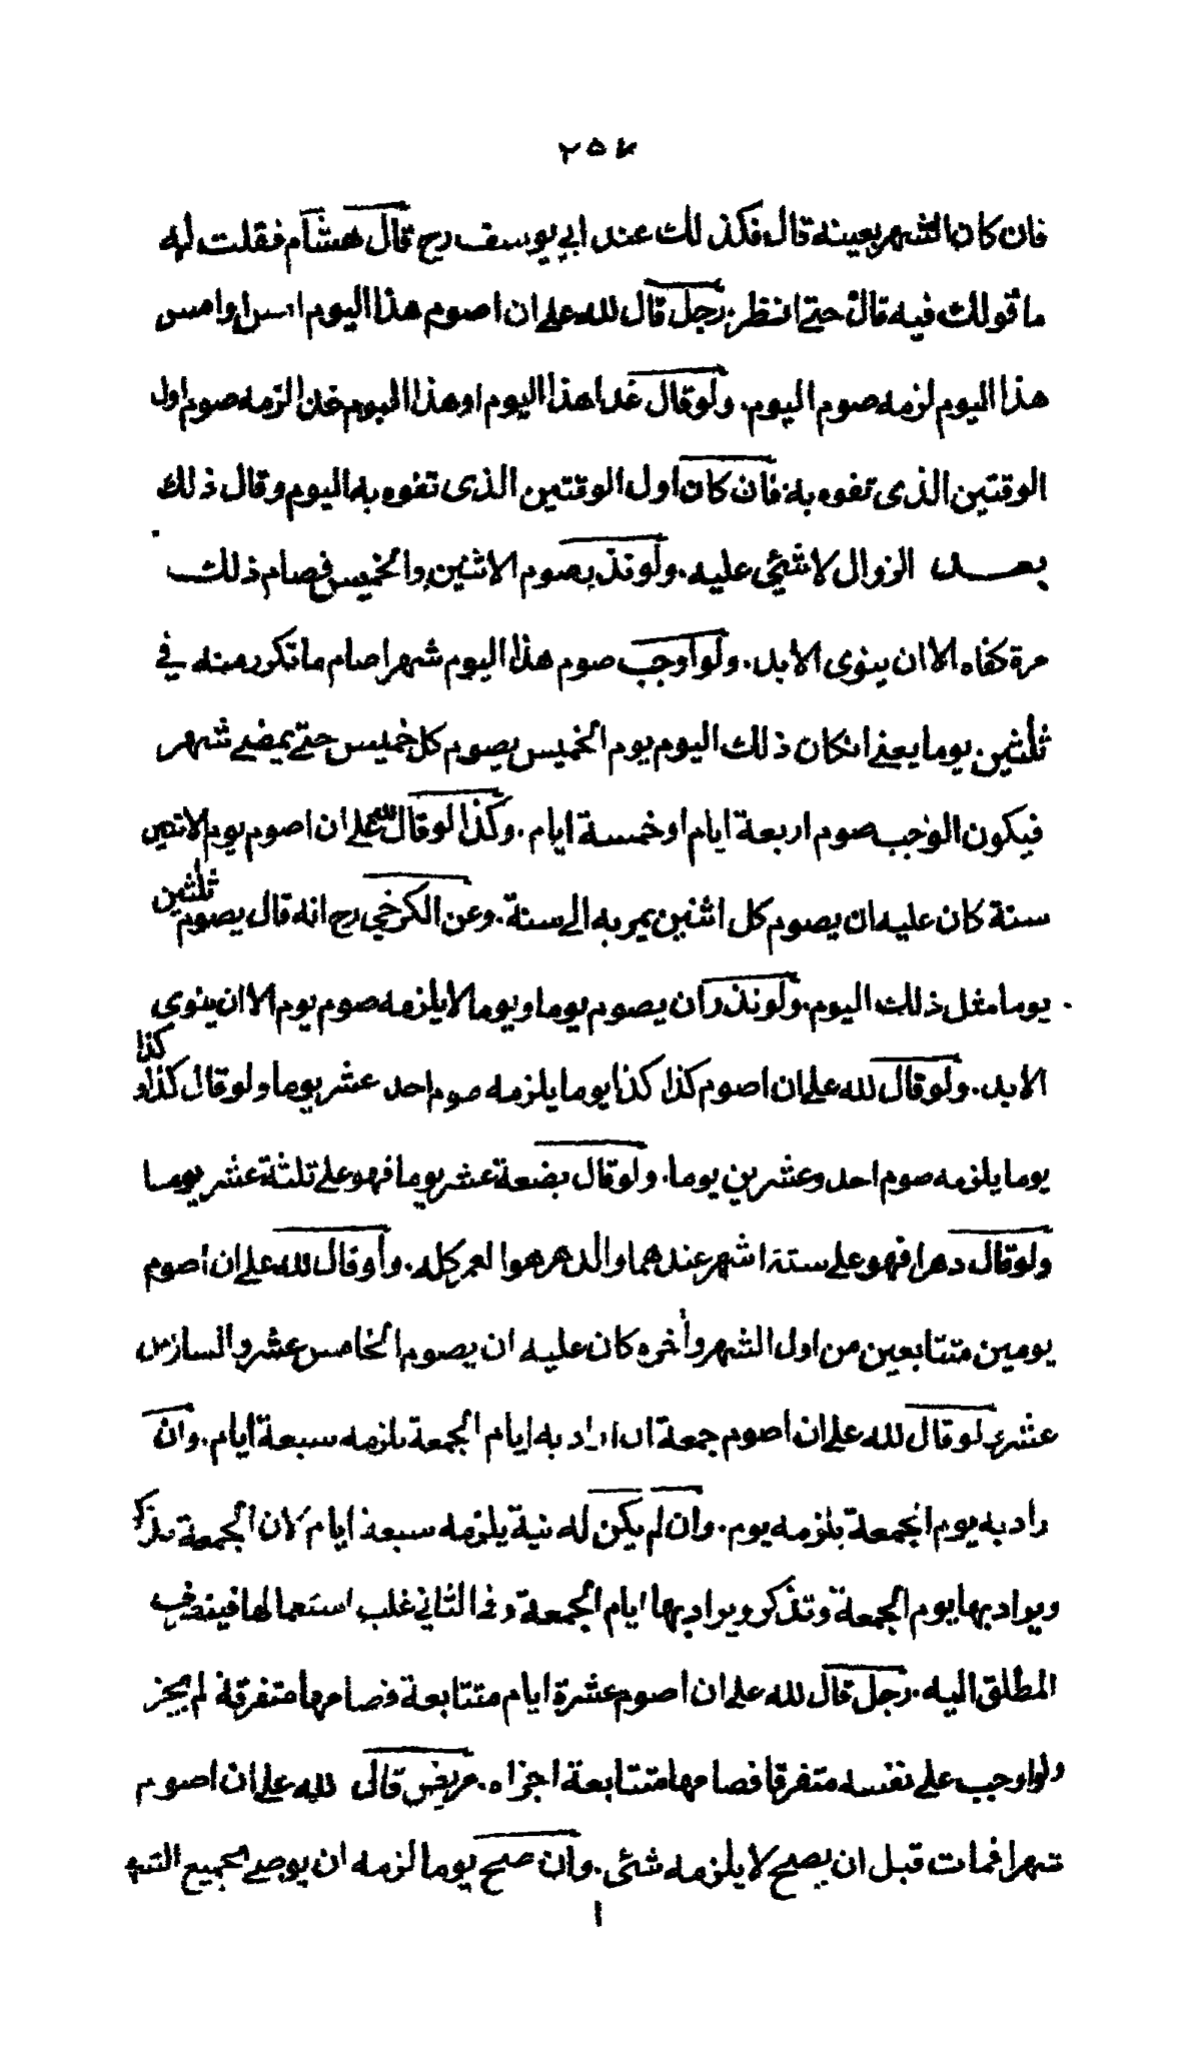 ٢٥٧
فان كان الشهر بعينه قال فكذلك عند ابي يوسف رح قال هشام فقلت له
ما قولك فيه قال حتى انظر. رجل قال لله على ان اصوم هذا اليوم امس او امس
هذا اليوم لزمه صوم اليوم. ولو قال غدا هذا اليوم او هذا اليوم غدا لزمه صوم اول
الوقتين الذى تفوه به فان كان اول الوقتين الذى تفوه به اليوم وقال ذلك
بعد الزوال لا شئي عليه. ولو نذر بصوم الاثنين والخميس فصام ذلك
مرة كفاه الا ان ينوى الابد. ولو اوجب صوم هذا اليوم شهرا صام ما تكرر منه في
ثلثين يوما يعني انكان ذلك اليوم يوم الخميس يصوم كل خميس حتى يمضي شهر
فيكون الوٰجب صوم اربعة ايام او خمسة ايام. وكذا لو قال لله على ان اصوم يوم الاثنين
سنة كان عليه ان يصوم كل اثنين يمر به الى سنة. وعن الكرخي رح انه قال يصوم ثلثين
يوما مثل ذلك اليوم. ولو نذر ان يصوم يوما ويوما لا يلزمه صوم يوم الا ان ينوى
الابد. ولو قال لله على ان اصوم كذا كذا يوما يلزمه صوم احد عشر يوما ولو قال كذا و كذا
يوما يلزمه صوم احد وعشرين يوما. ولو قال بضعة عشر يوما فهو على ثلثة عشر يوما
ولو قال دهرا فهو على ستة اشهر عندهما والدهر هو العمر كله. ولو قال لله على ان اصوم
يومين متتابعين من اول الشهر وأخره كان عليه ان يصوم الخامس عشر والسادس
عشر ولو قال لله على ان اصوم جمعة ان اراد به ايام الجمعة يلزمه سبعة ايام. وان
راد به يوم الجمعة يلزمه يوم. وان لم يكن له نية يلزمه سبعة ايام لان الجمعة تذكر
ويراد بها يوم الجمعة وتذكر ويراد بها ايام الجمعة وفى الثاني غلب استعمالها فينصرف
المطلق اليه. رجل قال لله على ان اصوم عشرة ايام متتابعة فصامها متفرقة لم يجز
ولو اوجب على نفسه متفرقا فصامها متتابعة اجزاه. مريض قال لله على ان اصوم
شهرا فمات قبل ان يصح لا يلزمه شئى. وان صح يوما لزمه ان يوصي بجميع الشهر
ا